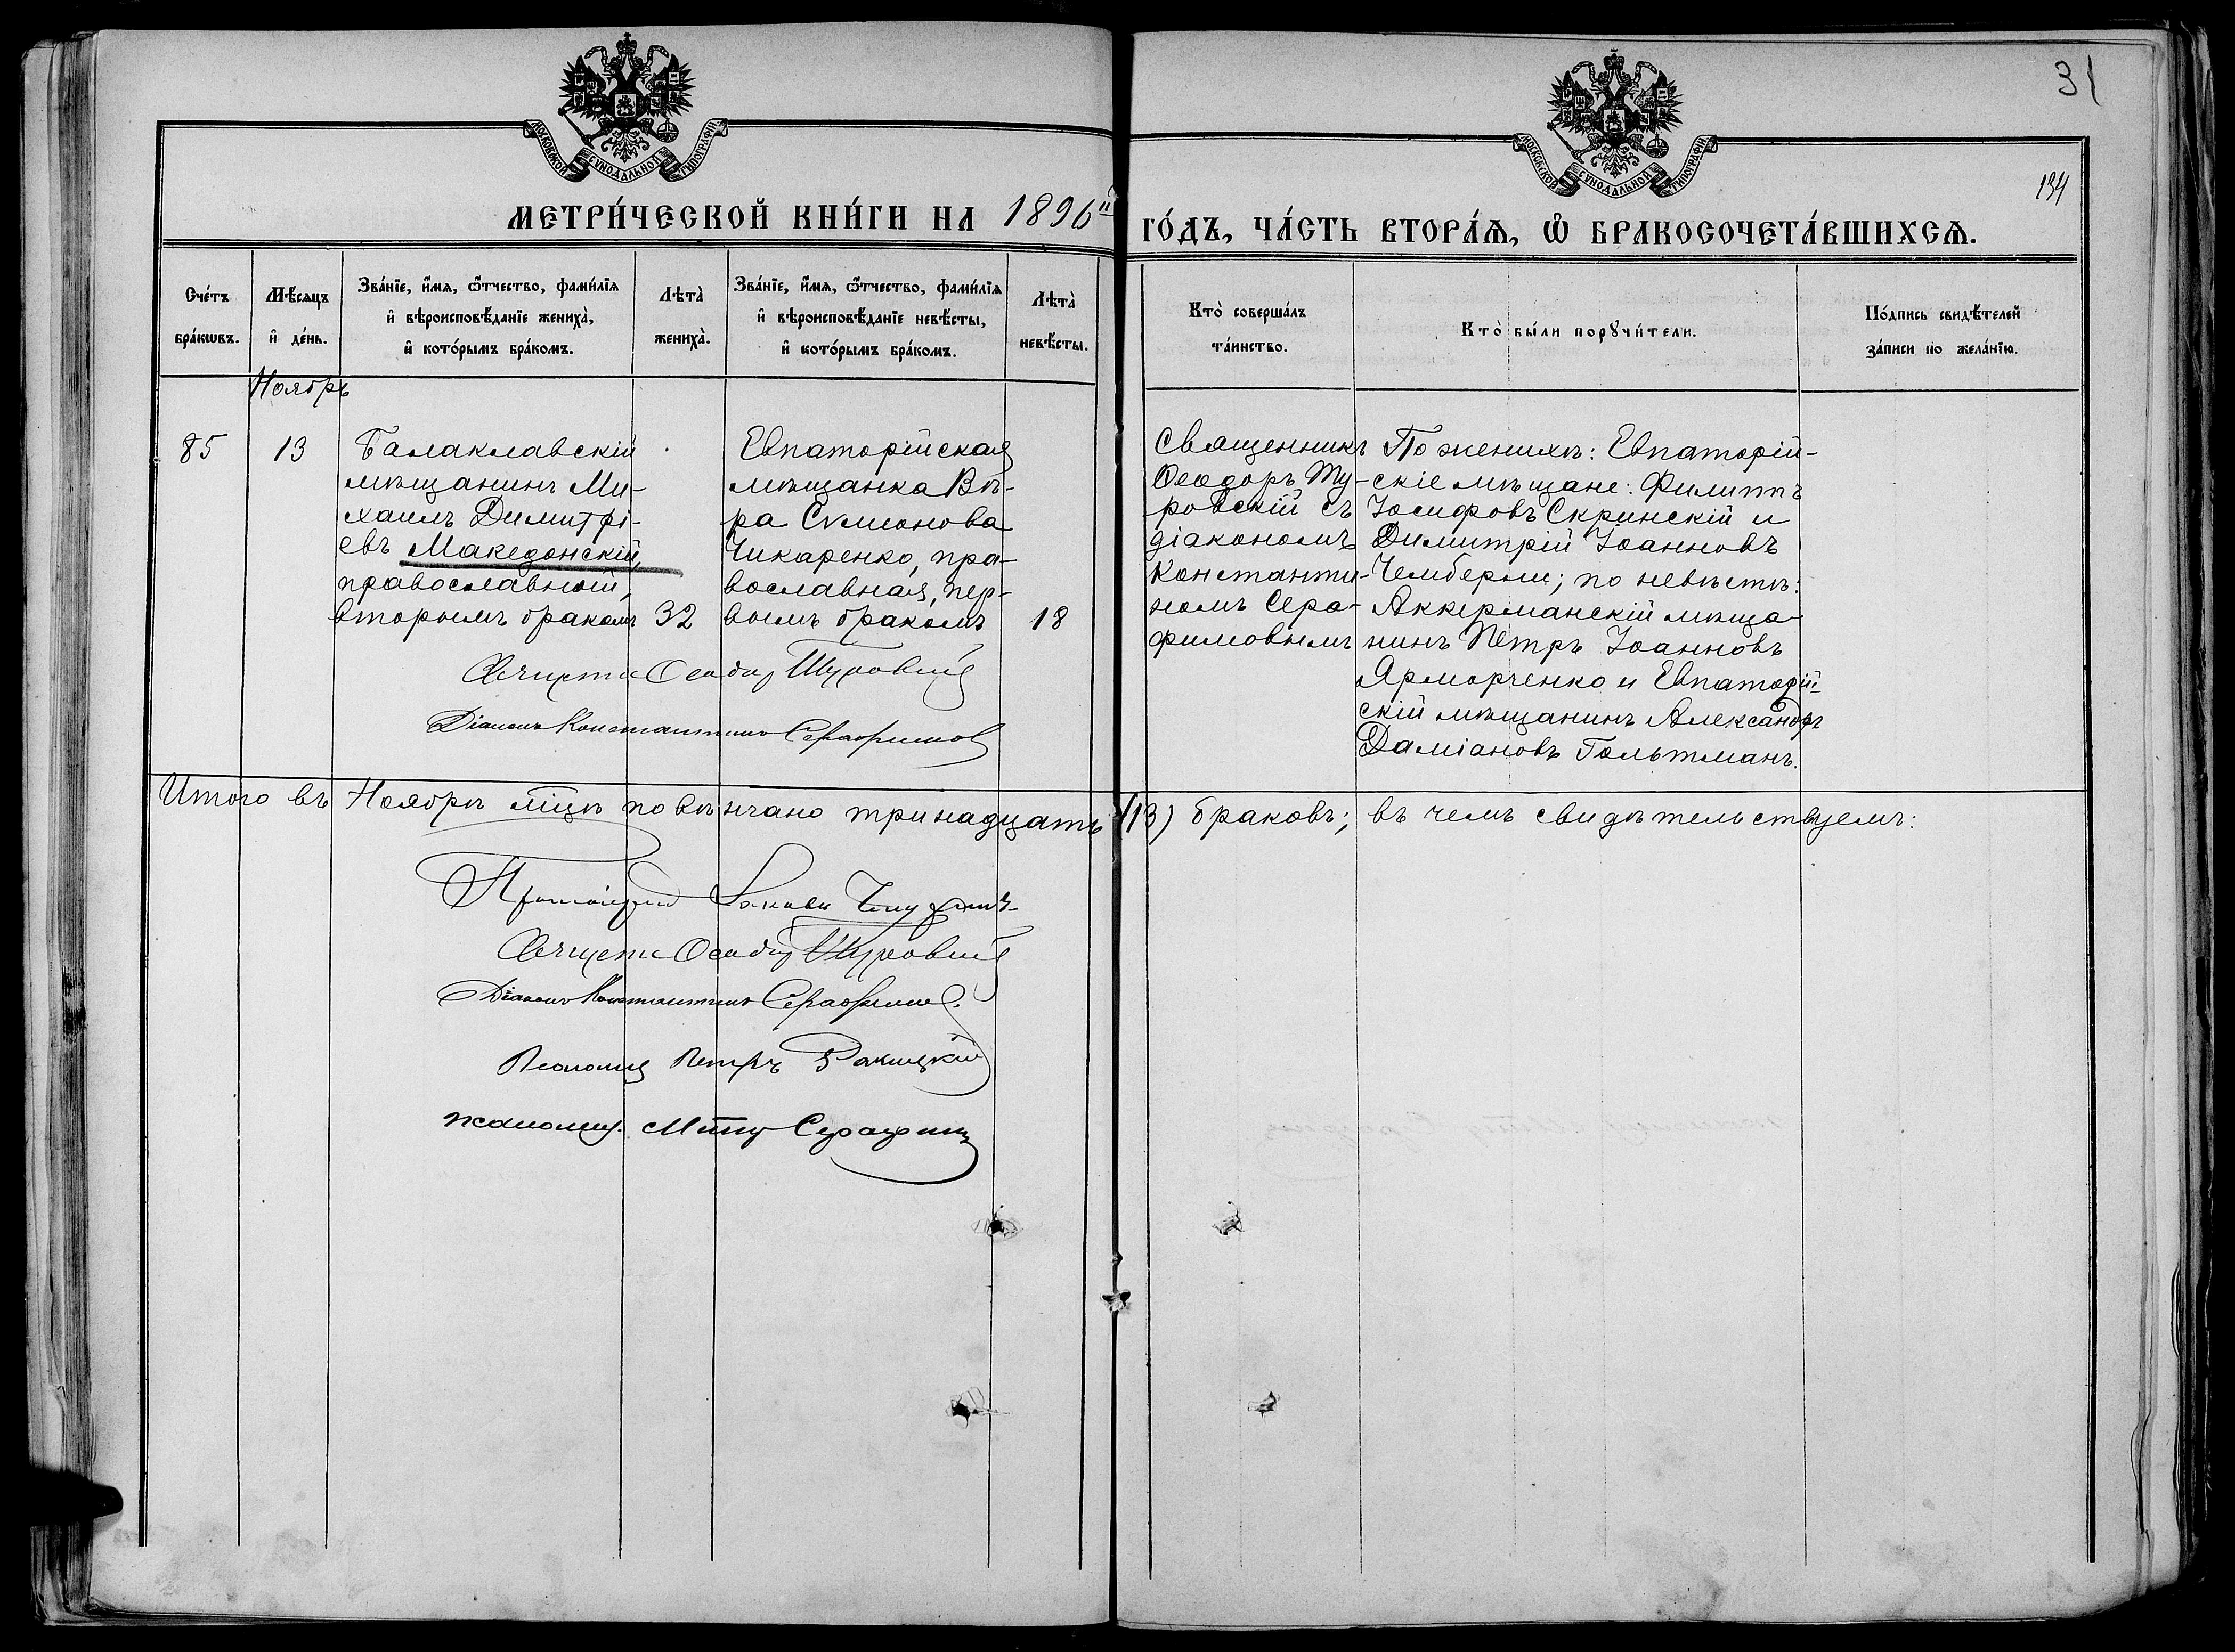 31
134
МОСКОВСКОЙ СѴНОДАЛЬНОЙ ТИПОГРАФІИ.
МОСКОВСКОЙ СѴНОДАЛЬНОЙ ТИПОГРАФІИ.
МЕТРИ́ЧЕСКОЙ КНИ́ГИ НА 1896й ГО́ДЪ, ЧА́СТЬ ВТОРА́Ѧ, Ѡ҆ БРАКОСОЧЕТА́ВШИХСѦ.
Сче́тъ
бра́кѡвъ.
Мѣ́сяцъ
и҆ де́нь.
Зва́нїе, и҆́мѧ, ѻ҆́тчество, фами́лїѧ
и҆ вѣроисповѣ́данїе жениха̀,
и҆ кото́рымъ бра́комъ.
Лѣта̀
жениха̀.
Зва́нїе, и҆́мѧ, ѻ҆́тчество, фами́лїѧ
и҆ вѣроисповѣ́данїе невѣ́сты,
и҆ кото́рымъ бра́комъ.
Лѣта̀
невѣ́сты.
Кто̀ соверша́лъ
та́инство.
Кто̀ бы́ли порꙋчи́тели.
По́дпись свидѣ́телей
за́писи по жела́нїю.
Ноябрь
85
13
Балаклавскій
мѣщанинъ Ми-
хаилъ Димитрі-
евъ Македонскій,
православный,
вторымъ бракомъ
32
Евпаторійская
мѣщанка Вѣ-
ра Сѵмеонова
Чикаренко, пра-
вославная, пер-
вымъ бракомъ
18
Священникъ
Ѳеодоръ Ту-
ровскій съ
діакономъ
Константи-
номъ Сера-
фимовымъ
По женихѣ: Евпаторій-
скіе мѣщане: Филиппъ
Іосифовъ Скринскій и
Димитрій Іоанновъ
Чемберли; по невѣстѣ:
Аккерманскій мѣща-
нинъ Петръ Іоанновъ
Ярморченко и Евпаторій-
скій мѣщанинъ Александръ
Даміановъ Гольтманъ.
Ѳеодоръ Туровскій
Діаконъ Константинъ Серафимовъ
Итого въ Ноябрѣ м͠цѣ повѣнчано тринадцать (13) браковъ; въ чемъ свидѣтельствуемъ:
Протоіерей
Ѳеодоръ Туровскій
Діаконъ Константинъ Серафимов.
Псаломщ Петръ Ракицкій
псаломщ.